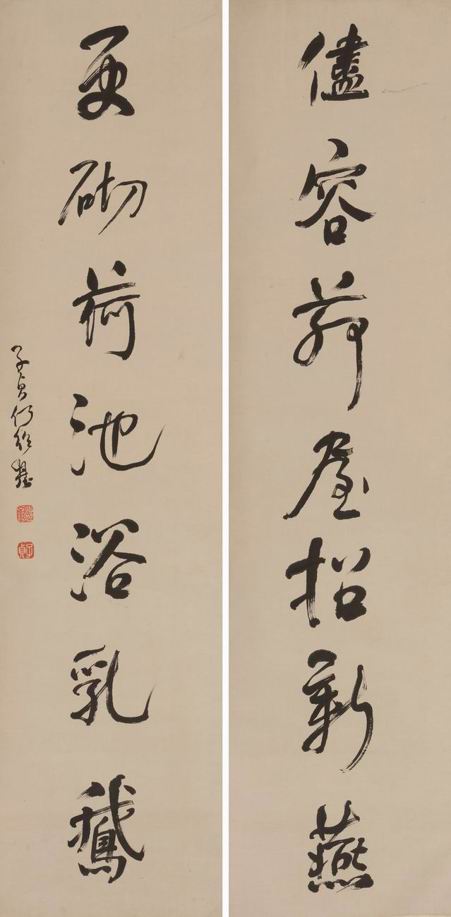 儘容茅屋招新燕
更砌荷池浴乳鵝
子貞何紹基